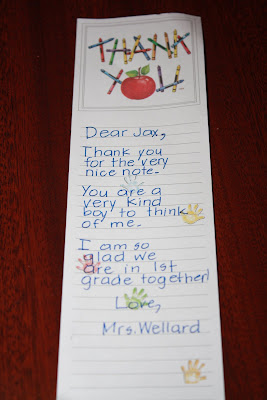 THANK
YOU
Dear Jax,
Thank you
for the very
nice note.
You are a
very kind
boy to think
of me.
I am so
glad we
are in 1st
grade together!
Love,
Mrs. Wellard